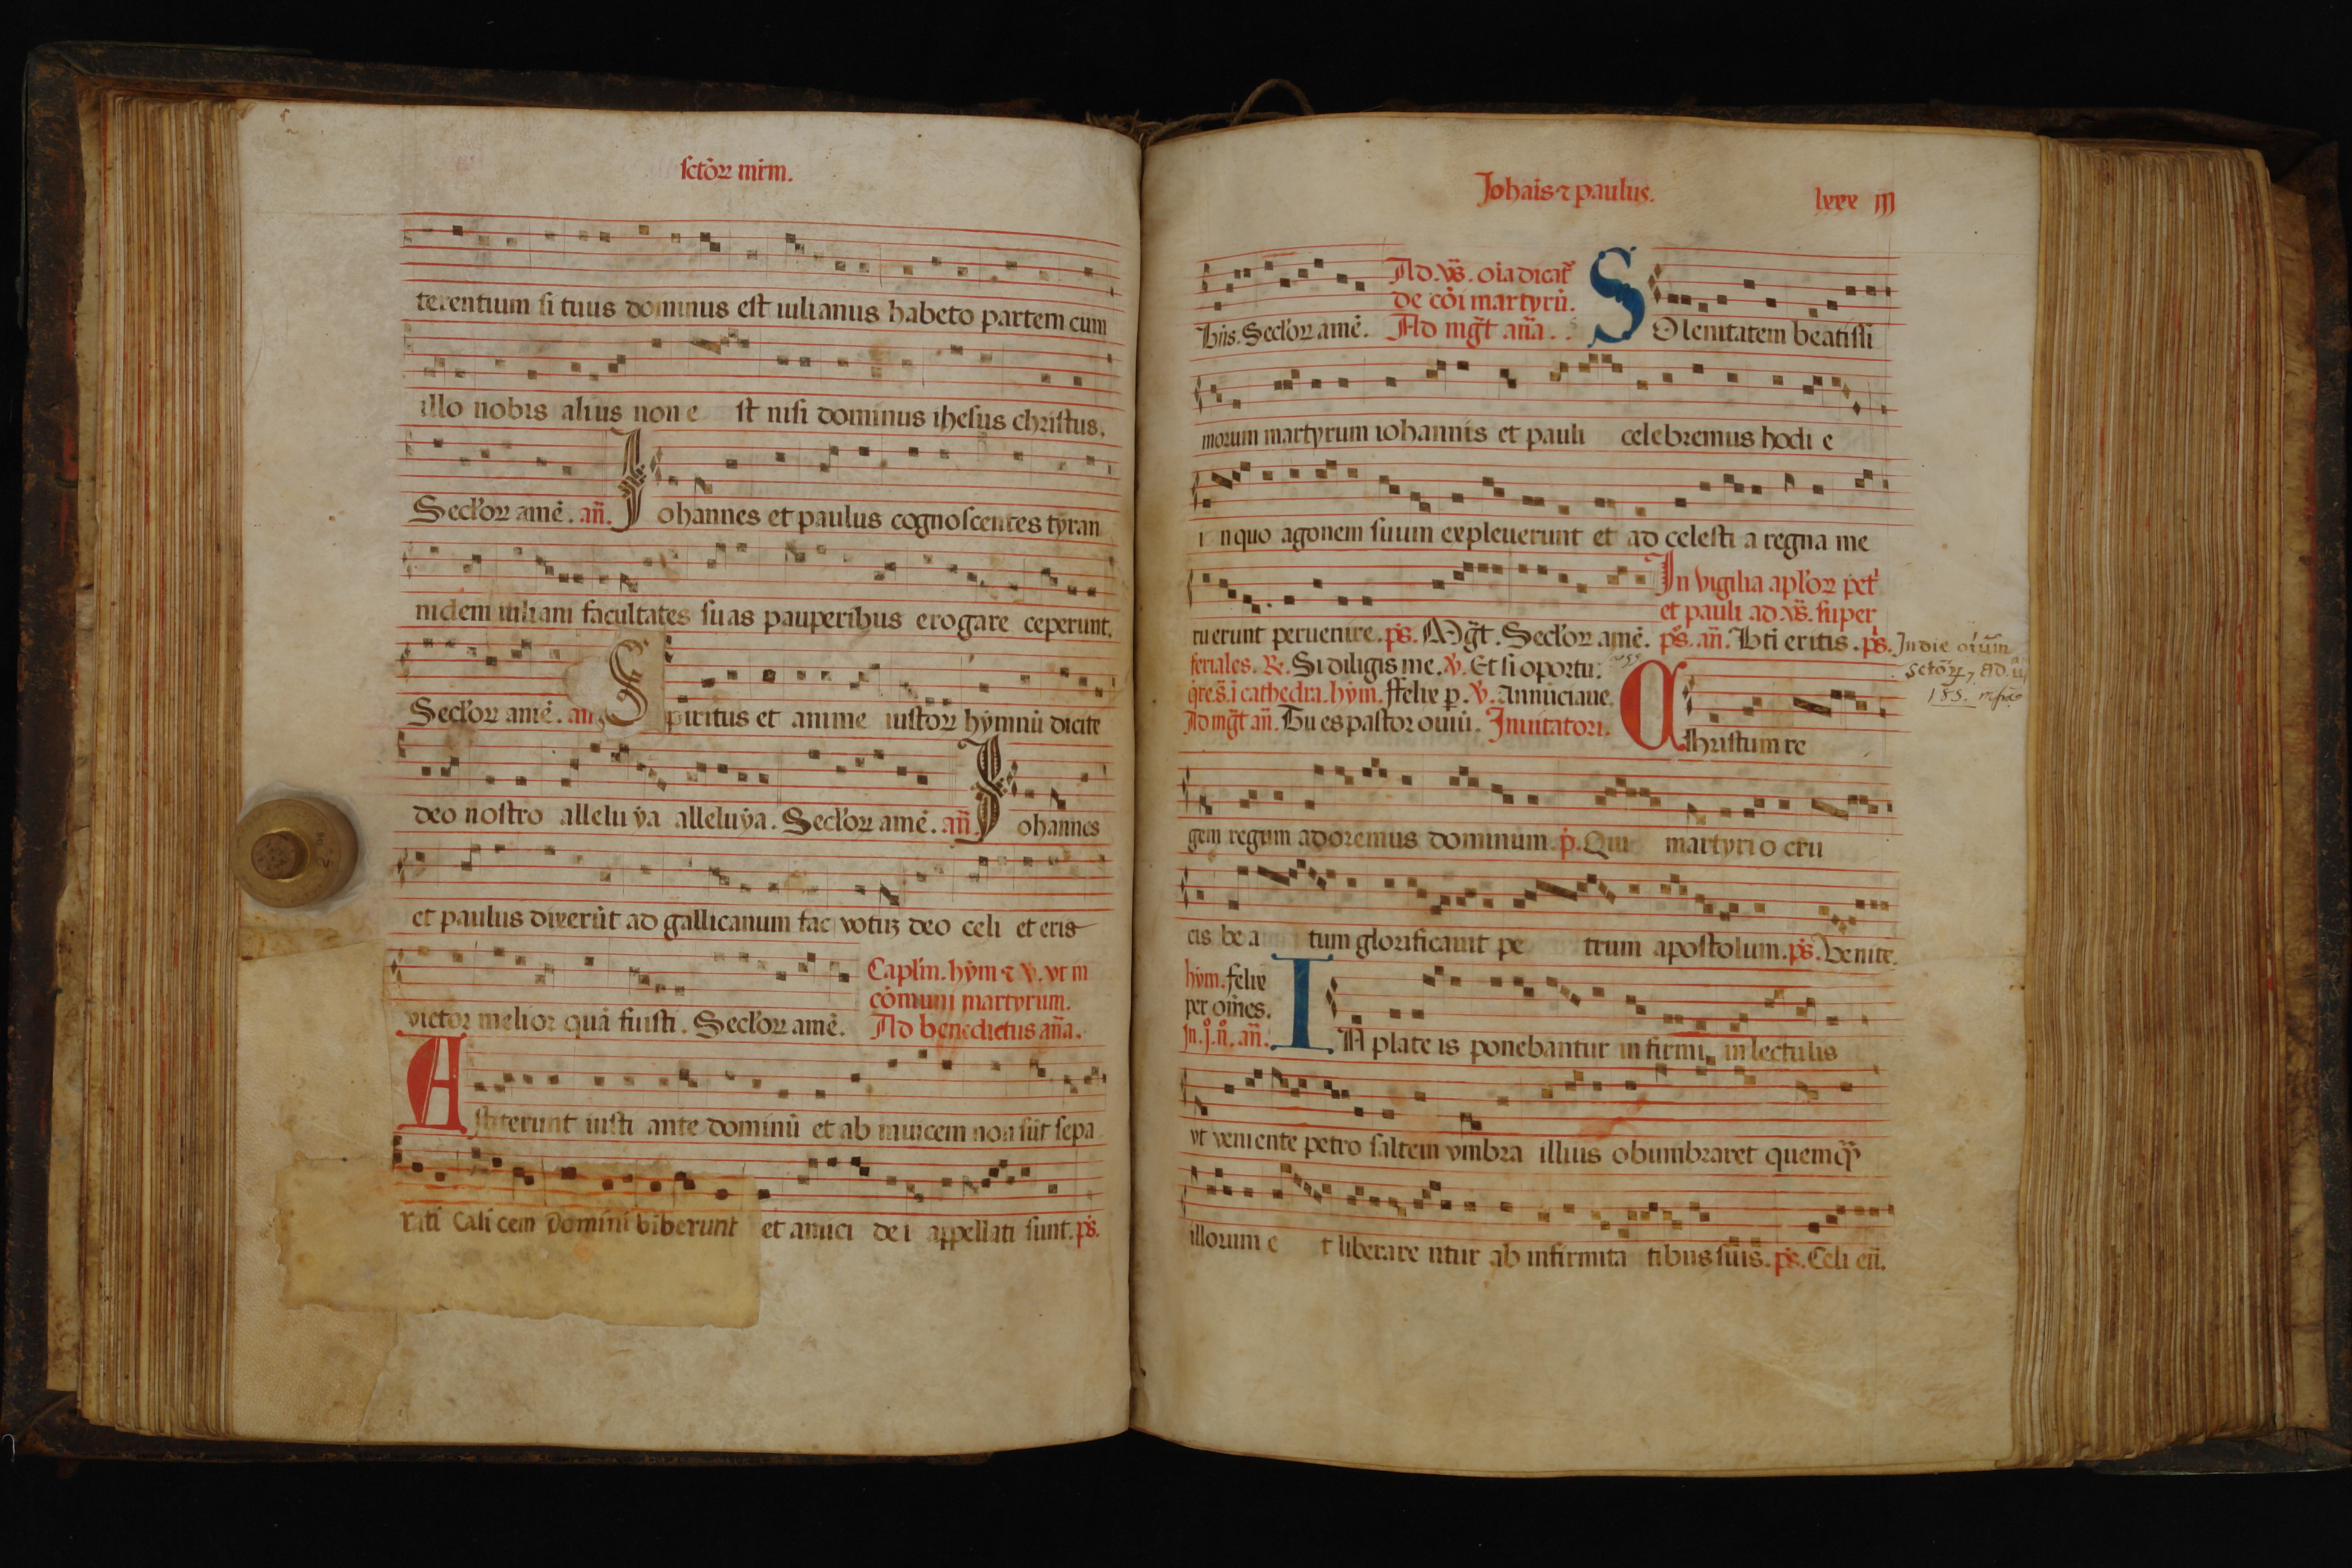 sctoꝝ mrm.
terentium si tuus dominus est iulianus habeto partem cum
illo nobis alius non e st nisi dominus ihesus christus.
Seclꝰoꝝ amē. añ. Iohannes et paulus cognoscentes tyran
nidem iuliani facultates suas pauperibus erogare ceperunt.
Secl'oꝝ amē. añ. Spiritus et anime iustoꝝ hymnū dicite
deo nostro allelu ya alleluya. Secl'oꝝ amē. añ. Iohannes
et paulus dixerūt ad gallicanum fac votuꝫ deo celi et eris
victor melior quā fuisti. Secl'oꝝ amē.
Caplm. hym ⁊ ꝟ. vt in
cōmuni martyrum.
Ad benedictus aña.
Astiterunt iusti ante dominū et ab inuicem non sūt sepa
rati Calicem Domini biberunt et amici de i appellati sunt. ps.
Johais ⁊ paulus. lxxx III
Ad. vs. oia dicat'
de cōi martyrū.
bris. Secl'oꝝ amē. Ad mgt aña. SOlenitatem beatissi
morum martyrum iohannis et pauli celebremus hodi e
i nquo agonem suum expleuerunt et ad celesti a regna me
In vigilia apl'oꝝ pet'
et pauli ad vs. super
ruerunt peruenire. ps. Mgt. Secl'oꝝ amē. ps. añ. Bti eritis. ps.
feriales. ℞. Si diligis me. ꝟ. Et si oportu.
In die oium
Sctoꝝ, Ad. u
q̄res. ī cathedra. hym. ffelix p. ꝟ. Annunciaue
Ad mgt añ. Tu es pastor ouiū. Inuitatori. Christum re
gem regum adoremus dominum. p. Qui martyrio cru
cis be a tum glorificauit pe trum apostolum. ps. Venite.
hym. felix
per om̄es.
In. j. n. añ. IN plate is ponebantur infirmi in lectulis
vt veniente petro saltem vmbra illius obumbraret quemqꝫ
illorum e t liberare ntur ab infirmita tibus suis. ps. Celi eñ.